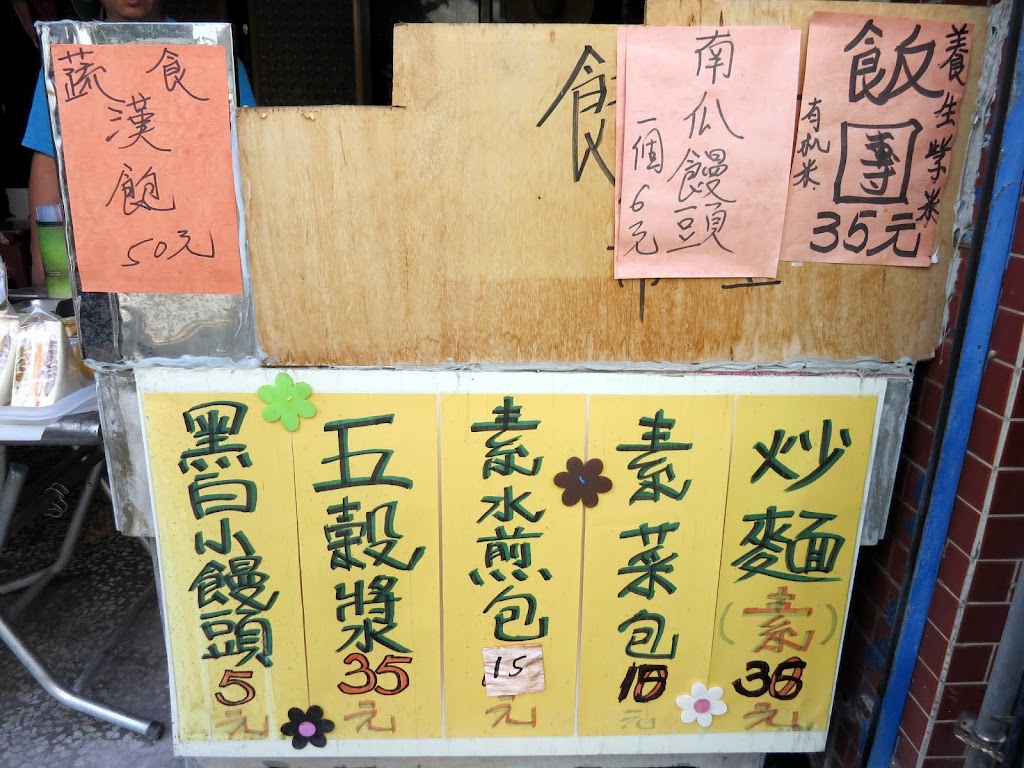 蔬食
漢飽
50元
南瓜饅頭
一個6元
養生紫米
飯團
有机米
35元
黑白小饅頭
5元
五穀漿
35元
素水煎包
15
元
素菜包
元
炒麵
(素)
元